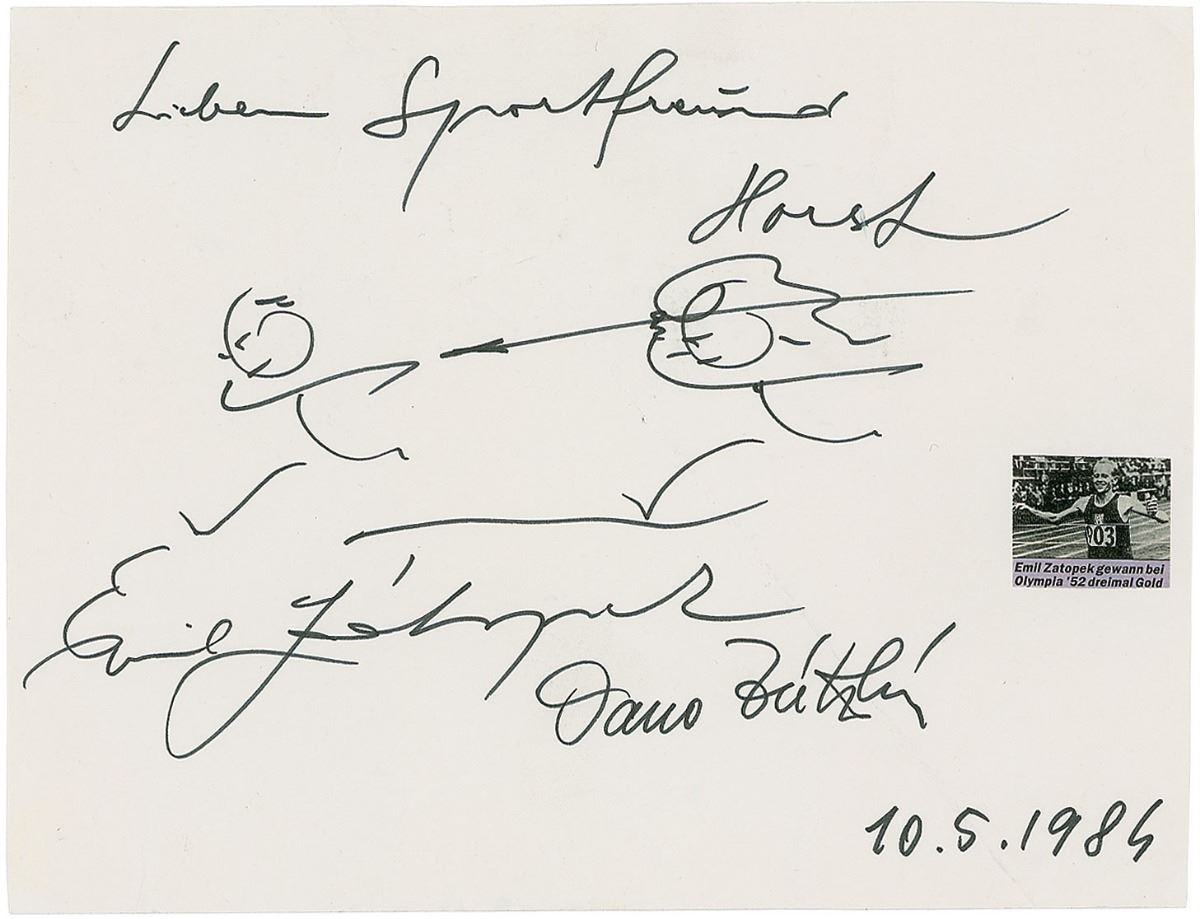 Lieben Sportfreund
Horst
Emil Zátopek
Dana Zátpk
10.5.1984
Emil Zatopek gewann bei
Olympia '52 dreimal Gold